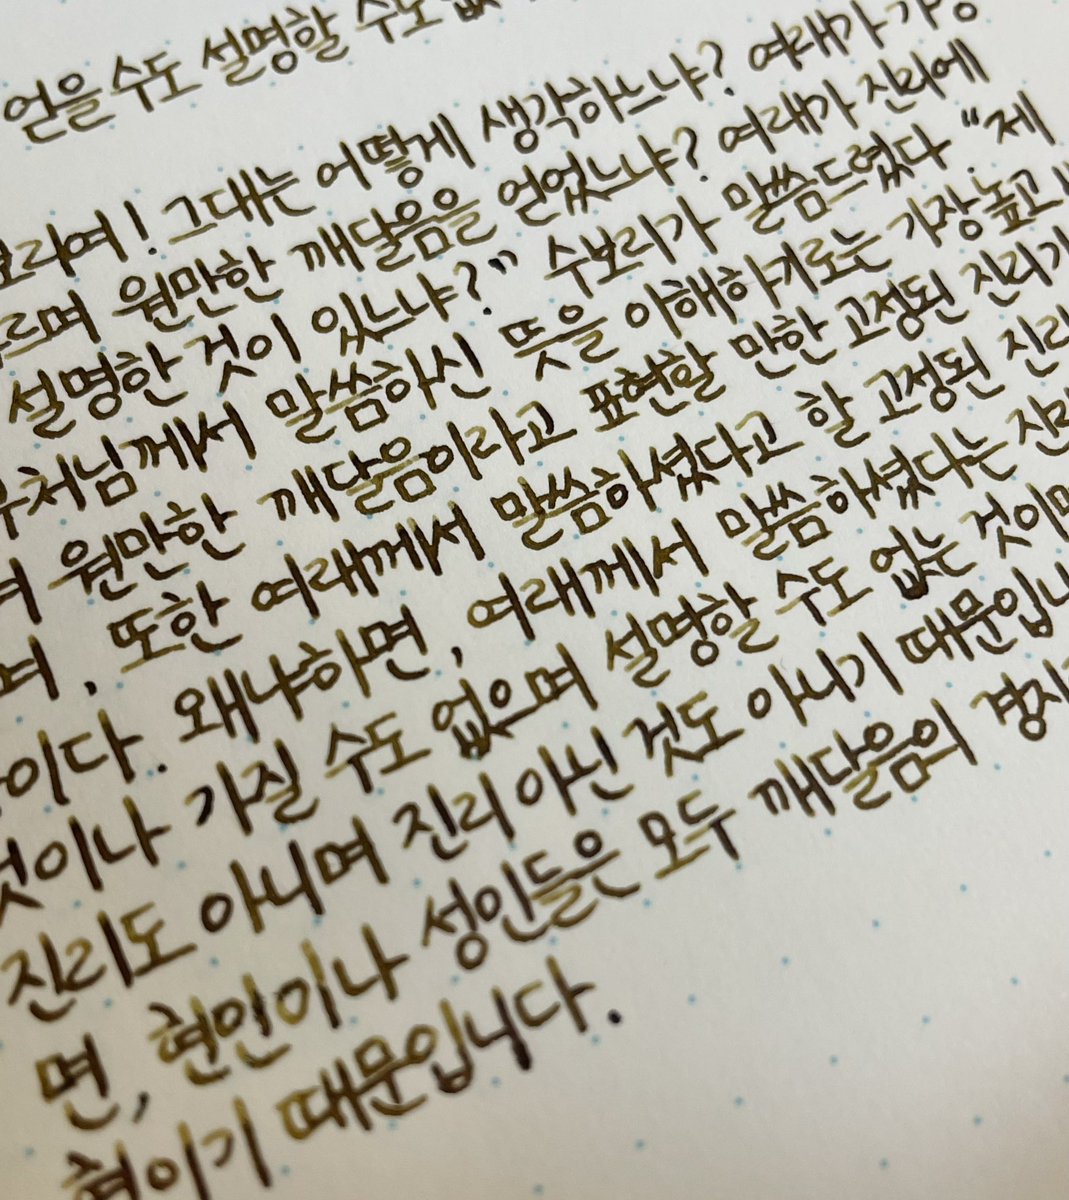 얻을 수도 설명할 수도 없
보리여! 그대는 어떻게 생각하느냐? 여래가 가장
높으며 원만한 깨달음을 얻었느냐? 여래가 진리에
설명한 것이 있느냐?" 수보리가 말씀드렸다. "제
부처님께서 말씀하신 뜻을 이해하기로는 가장 높고
며 원만한 깨달음이라고 표현할 만한 고정된 진리가
며. 또한 여래께서 말씀하셨다고 할 고정된 진리
이다. 왜냐하면, 여래께서 말씀하셨다는 진리
것이나 가질 수도 없으며 설명할 수도 없는 것이며
진리도 아니며 진리 아닌 것도 아니기 때문입니
면, 현인이나 성인들은 모두 깨달음의 경지
현이기 때문입니다.